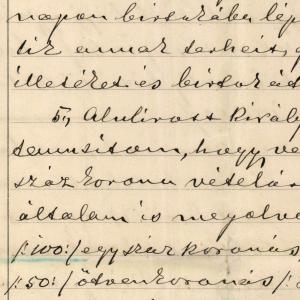 napon birtokába lép
tix annak terheit,
illetéket és birtok át
5., Alulirott Király
tanusitom, hogy ve
száz korona vételá
általam is megolva
/:100:/ egyszáz koronás,
/:50:/ ötvenkoronás /: